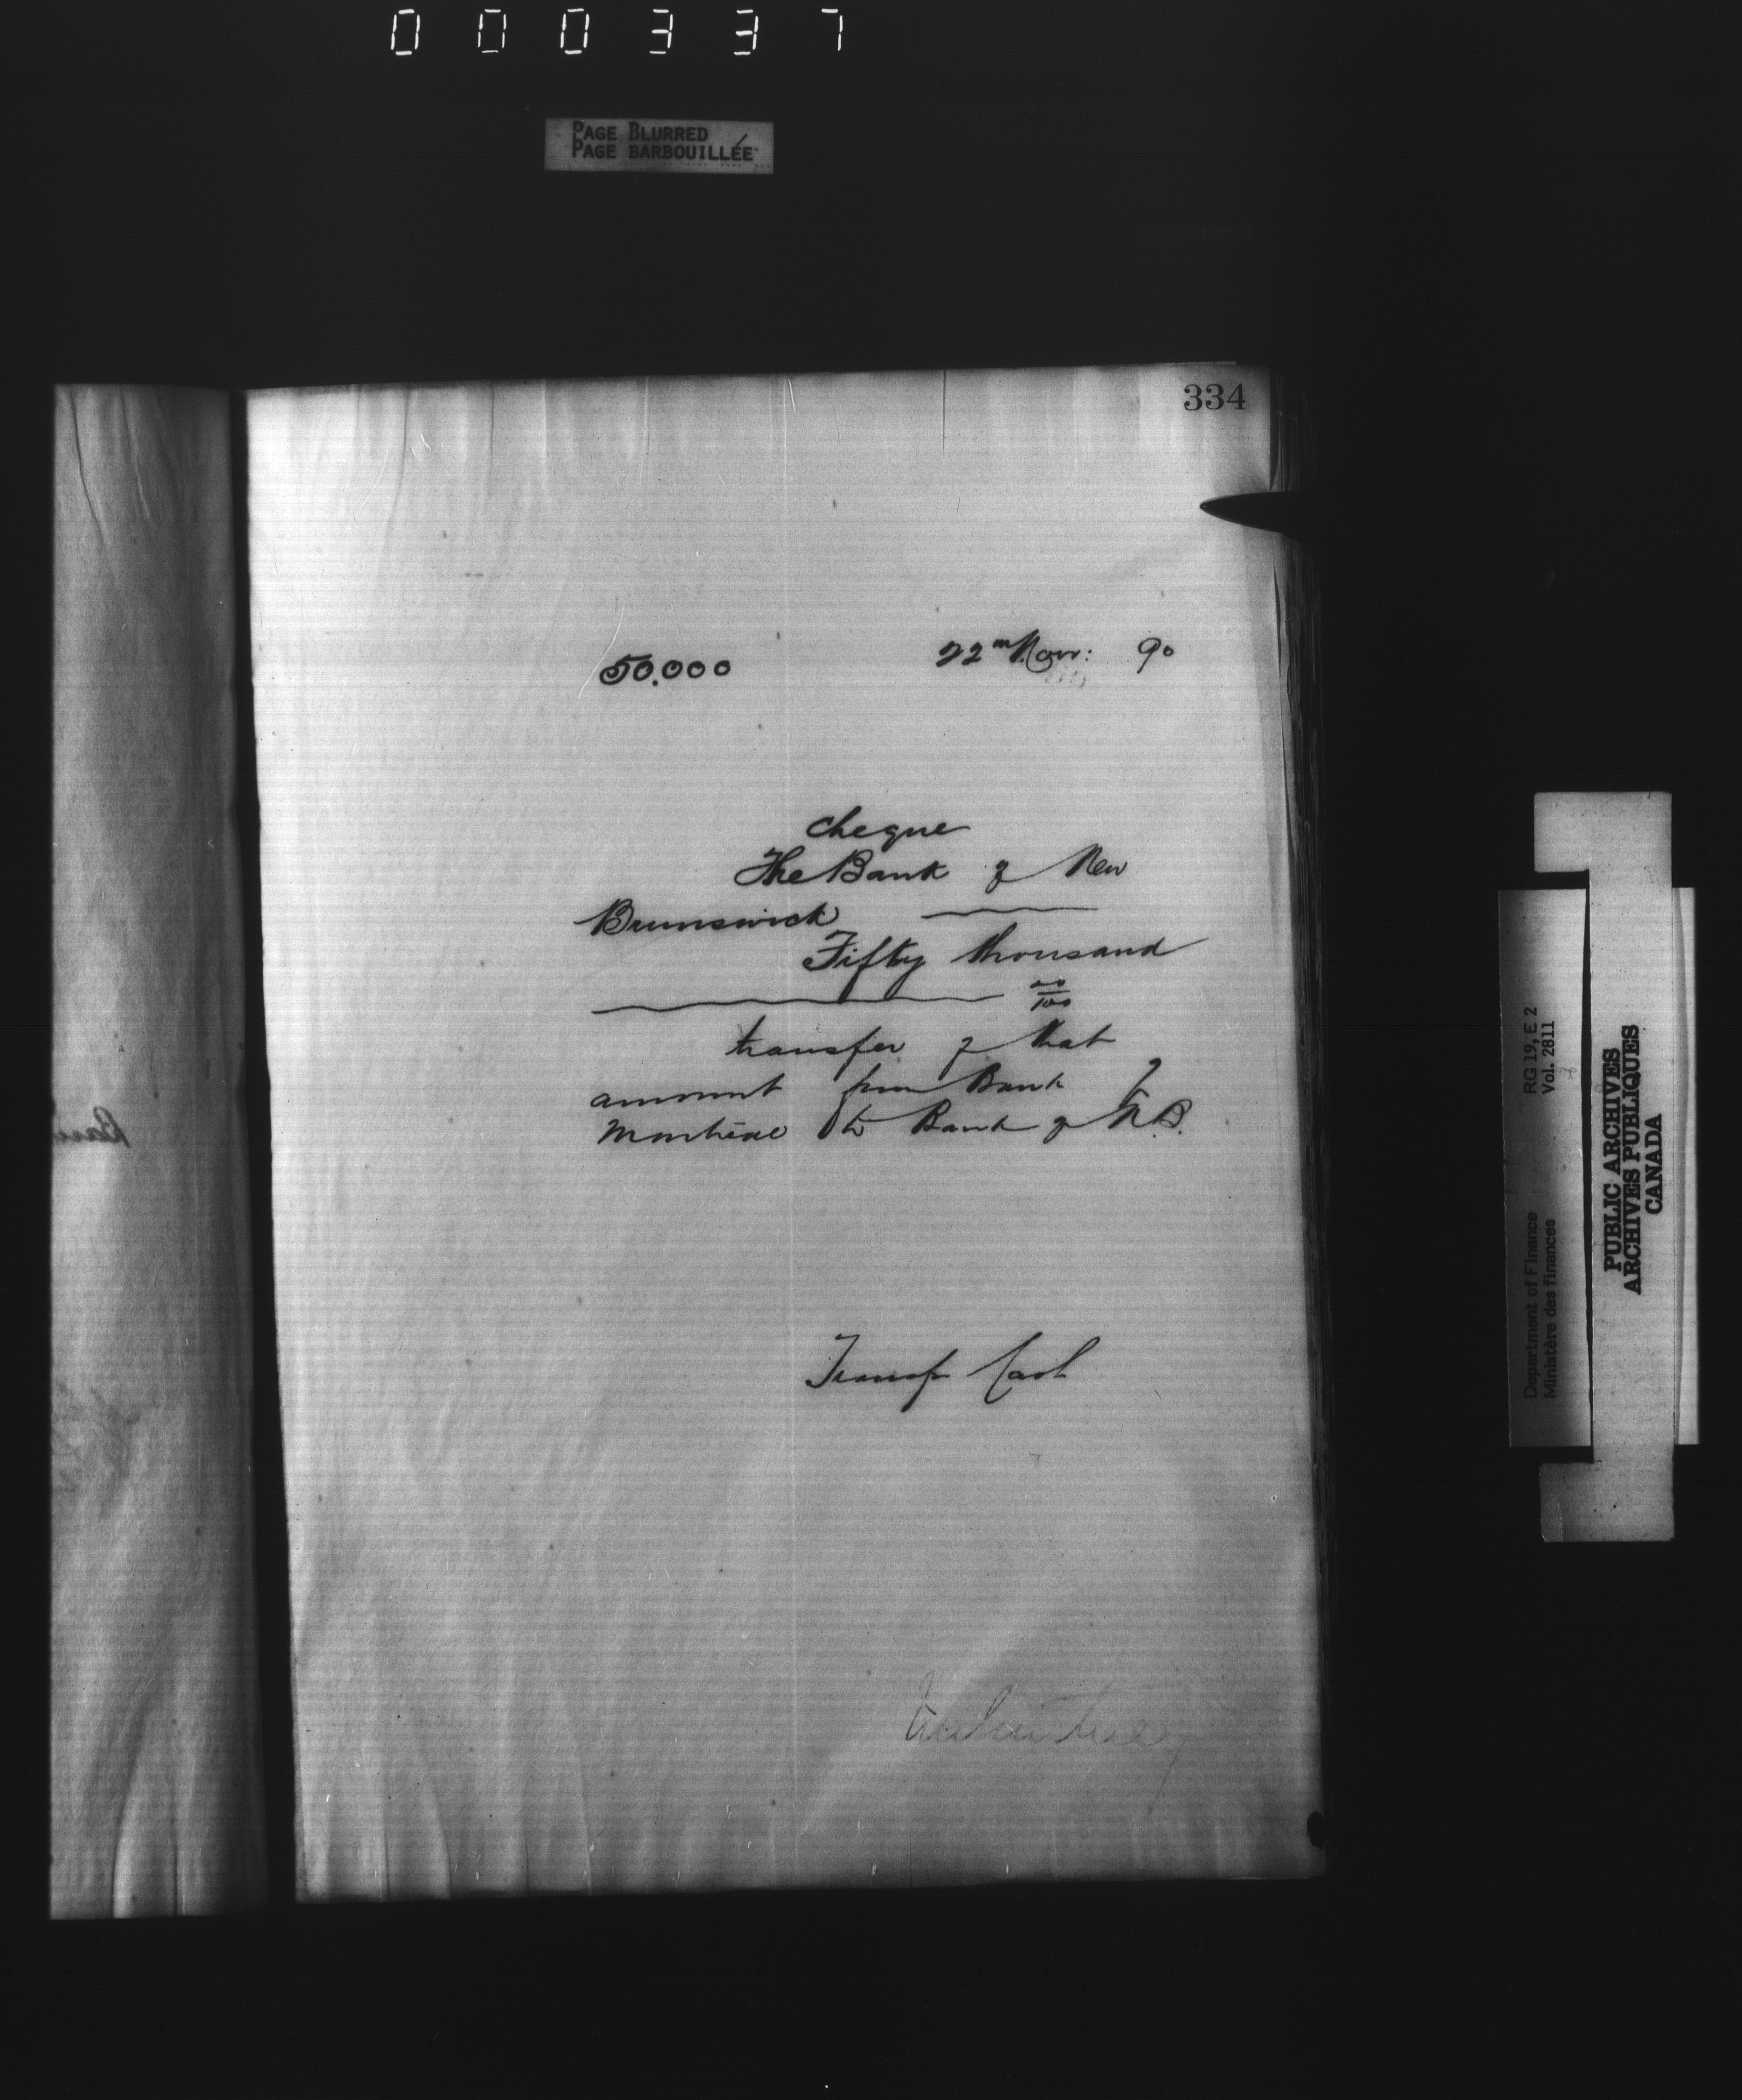 000337
PAGE BLURRED
PAGE BARBOUILLÉE
334
50.000
22nd Nov: 90
Cheque
The Bank of New
Brunswick
Fifty thousand
00/100
transfer of that
amount from Bank of
Montreal to Bank of N.B.
Transfr Cash
RG 19, E 2
Vol. 2811
Department of Finance
Ministère des finances
PUBLIC ARCHIVES
ARCHIVES PUBLIQUES
CANADA